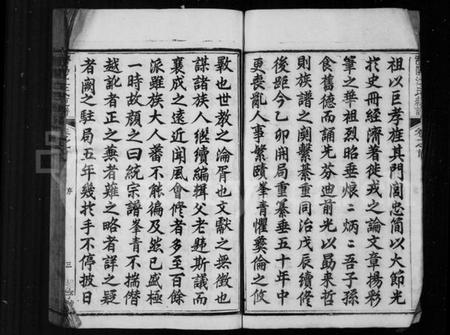 祖以巨孝旌其門閭忠簡以大節光
於史冊經濟著徙戎之論文章揚彩
筆之華祖烈昭垂烺〻炳〻吾子孫
食舊德而誦先芬迪前光以勗來哲
則族譜之關繫綦重同治戊辰續修
後距今乙卯開局重纂垂五十年中
更喪亂人事繁賾峯青懼彝倫之攸
斁也世教之淪胥也文獻之無徵也
謀諸族人繼續編輯父老韙斯議而
襄成之遠近聞風會修者多至百餘
派雖族大人蕃不能徧及然已盛極
一時故顏之曰統宗譜峯青不揣僭
越訛者正之蕪者薙之略者詳之疑
者闕之駐局五年幾於手不停披日
序
三